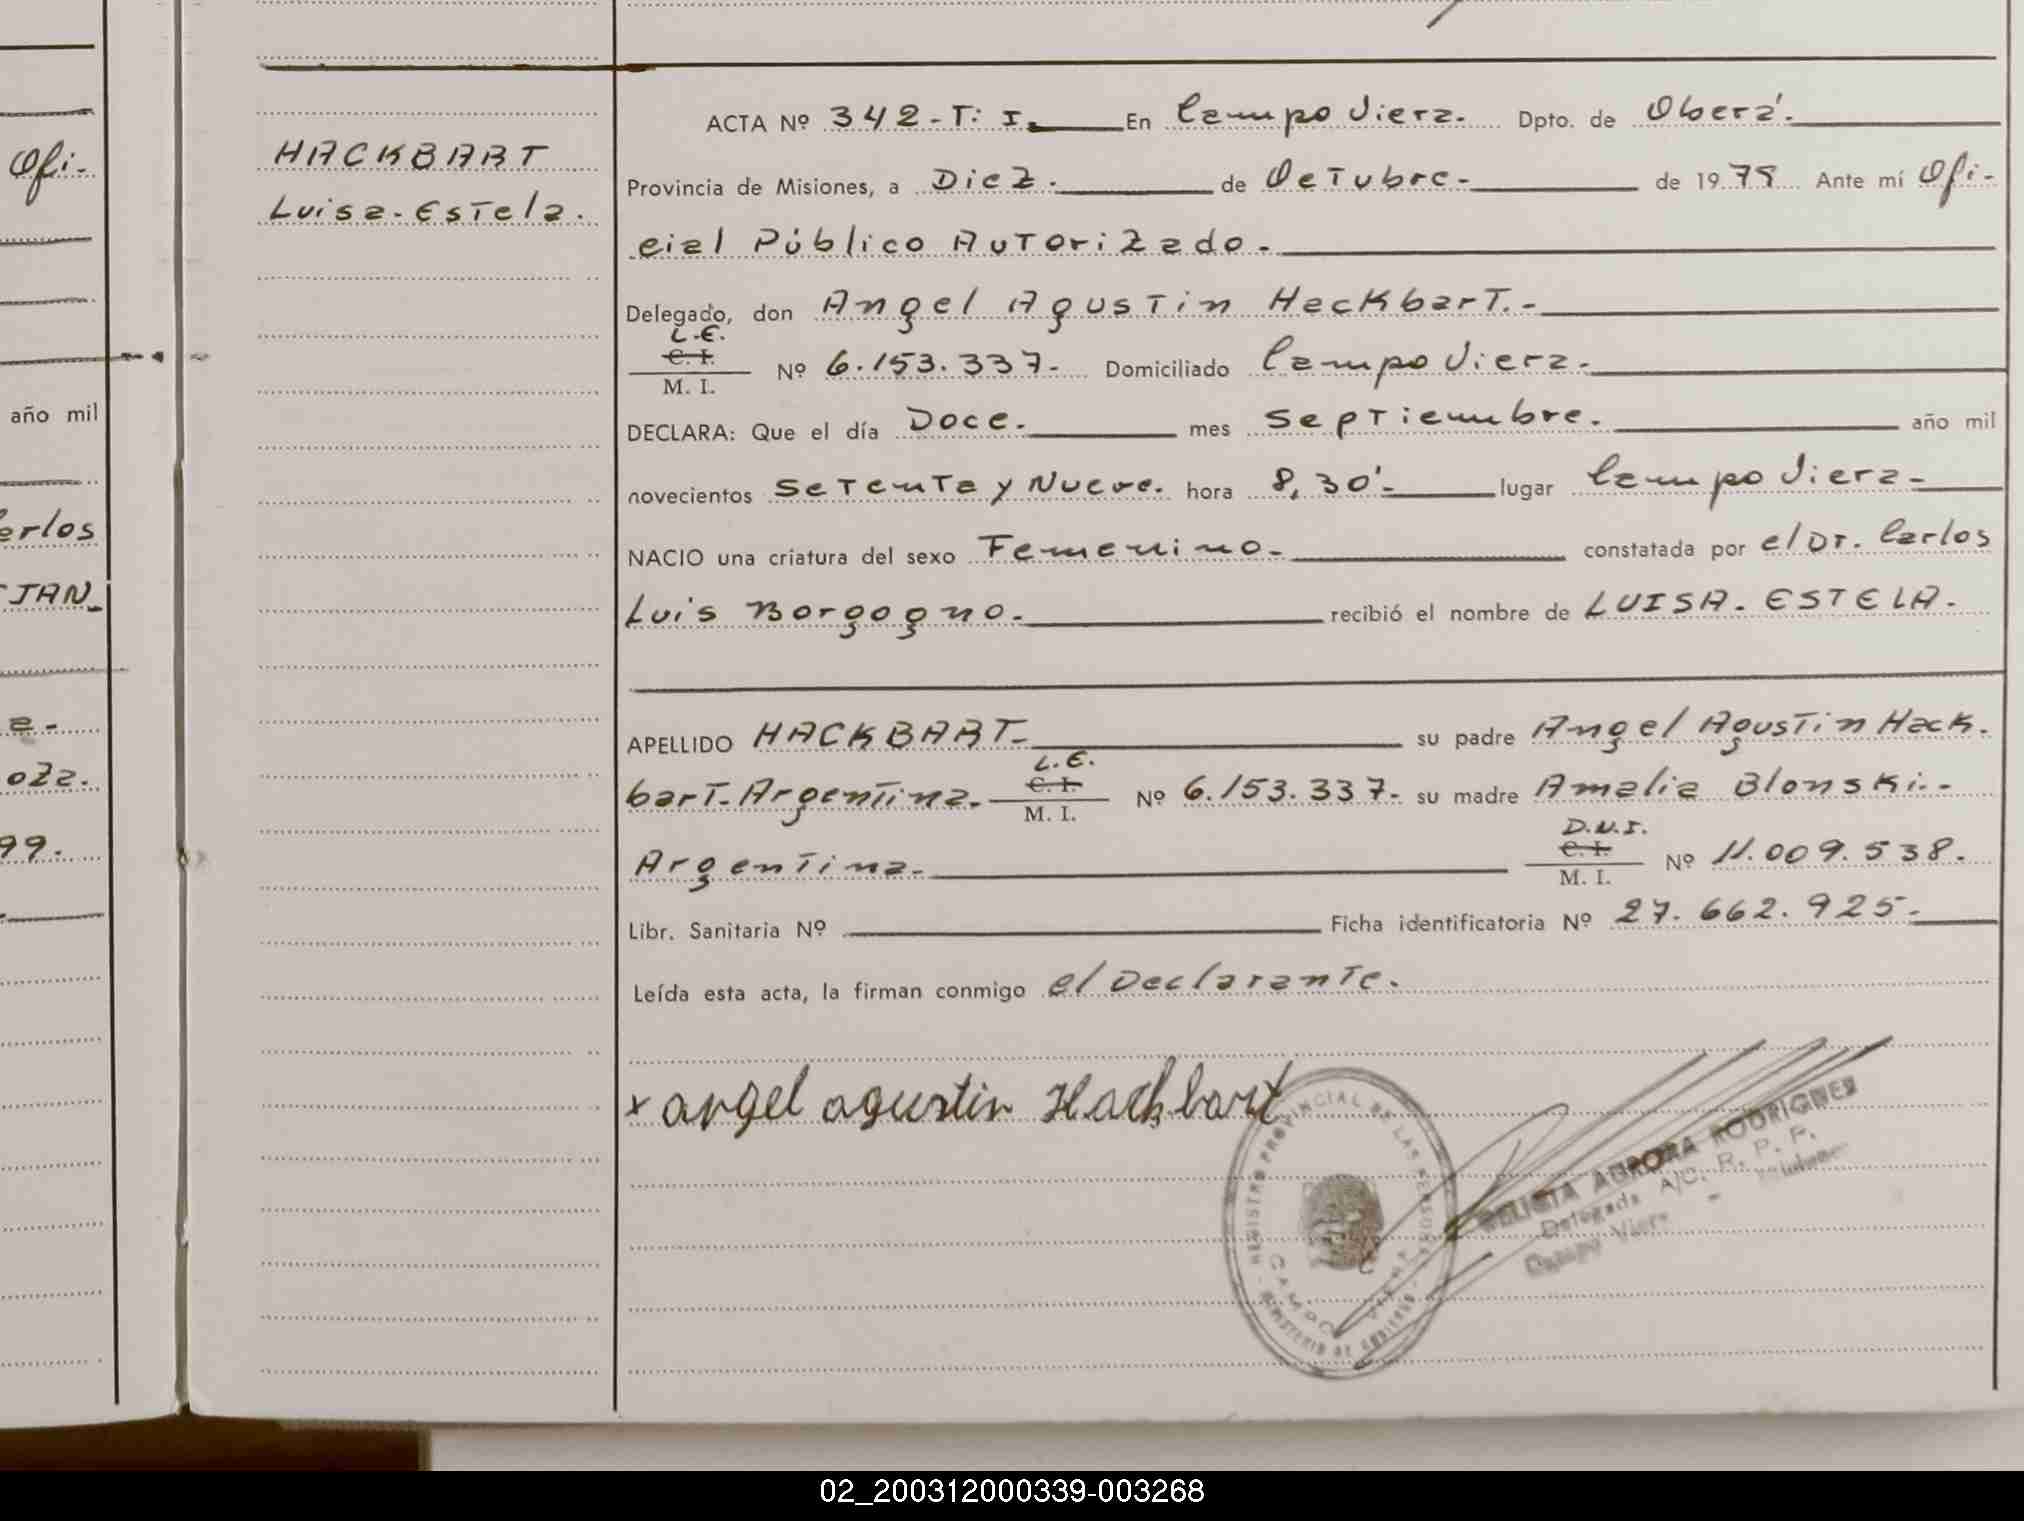 Ofi-
año mil
erlos
JAN
oza.
99.
HACKBART
Luisa-Estela.
ACTA Nº 342-T: I. En Campo Viera. Dpto. de Oberá.
Provincia de Misiones, a Diez. de Octubre. de 1979 Ante mí Ofi-
cial Público Autorizado.
Delegado, don Angel Agustin Hackbart.
L.E.
C. I.
M. I.
Nº 6.153.337. Domiciliado Campo Viera.
DECLARA: Que el día Doce. mes Septiembre. año mil
novecientos Setenta y Nueve. hora 8,30'. lugar Campo Viera.
NACIO una criatura del sexo Femenino. constatada por el Dr. Carlos
Luis Borgogno. recibió el nombre de LUISA. ESTELA.
APELLIDO HACKBART. su padre Angel Agustin Hack.
L.E.
bart. Argentina. C. I. Nº 6.153.337. su madre Amalia Blonski.
M. I.
D.N.I.
Argentina. C. I. Nº 11.009.538.
M. I.
Libr. Sanitaria Nº Ficha identificatoria Nº 27.662.925.
Leída esta acta, la firman conmigo el Declarante.
x angel agustin Hackbart
REGISTRO PROVINCIAL DE LAS PERSONAS
CAMPO VIERA
MINISTERIO DE GOBIERNO
AURORA RODRIGUEZ
Delegada A/C. R. P. P.
Campo Viera - Misiones
02_200312000339-003268